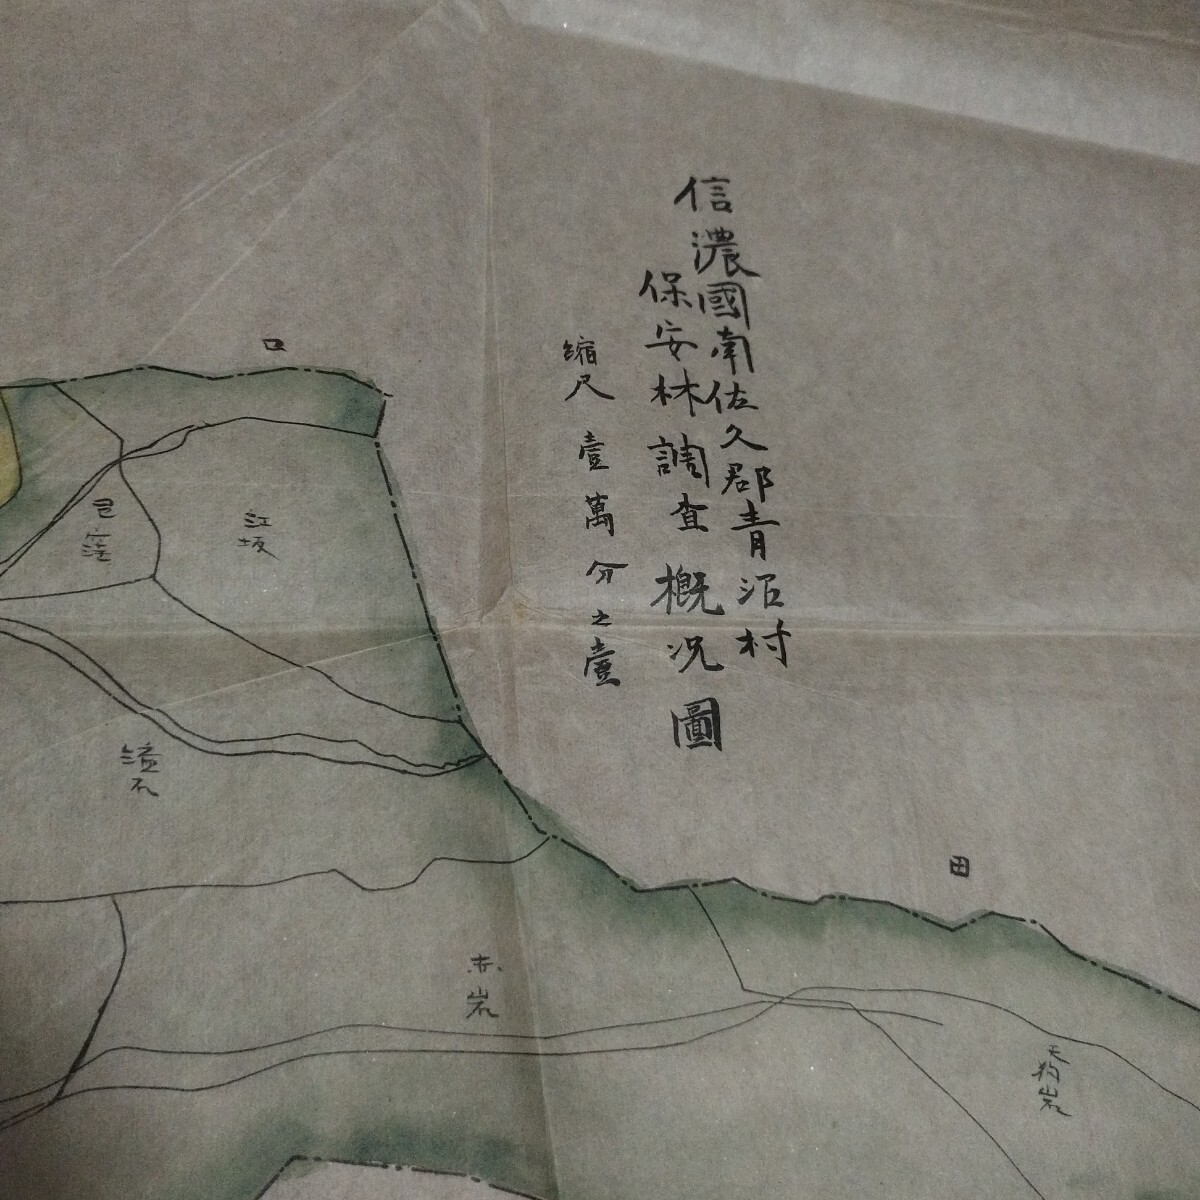 信濃國南佐久郡青沼村
保安林調査概況圖
縮尺 壹萬分之壹
口
江坂
赤岩
田
天狗岩